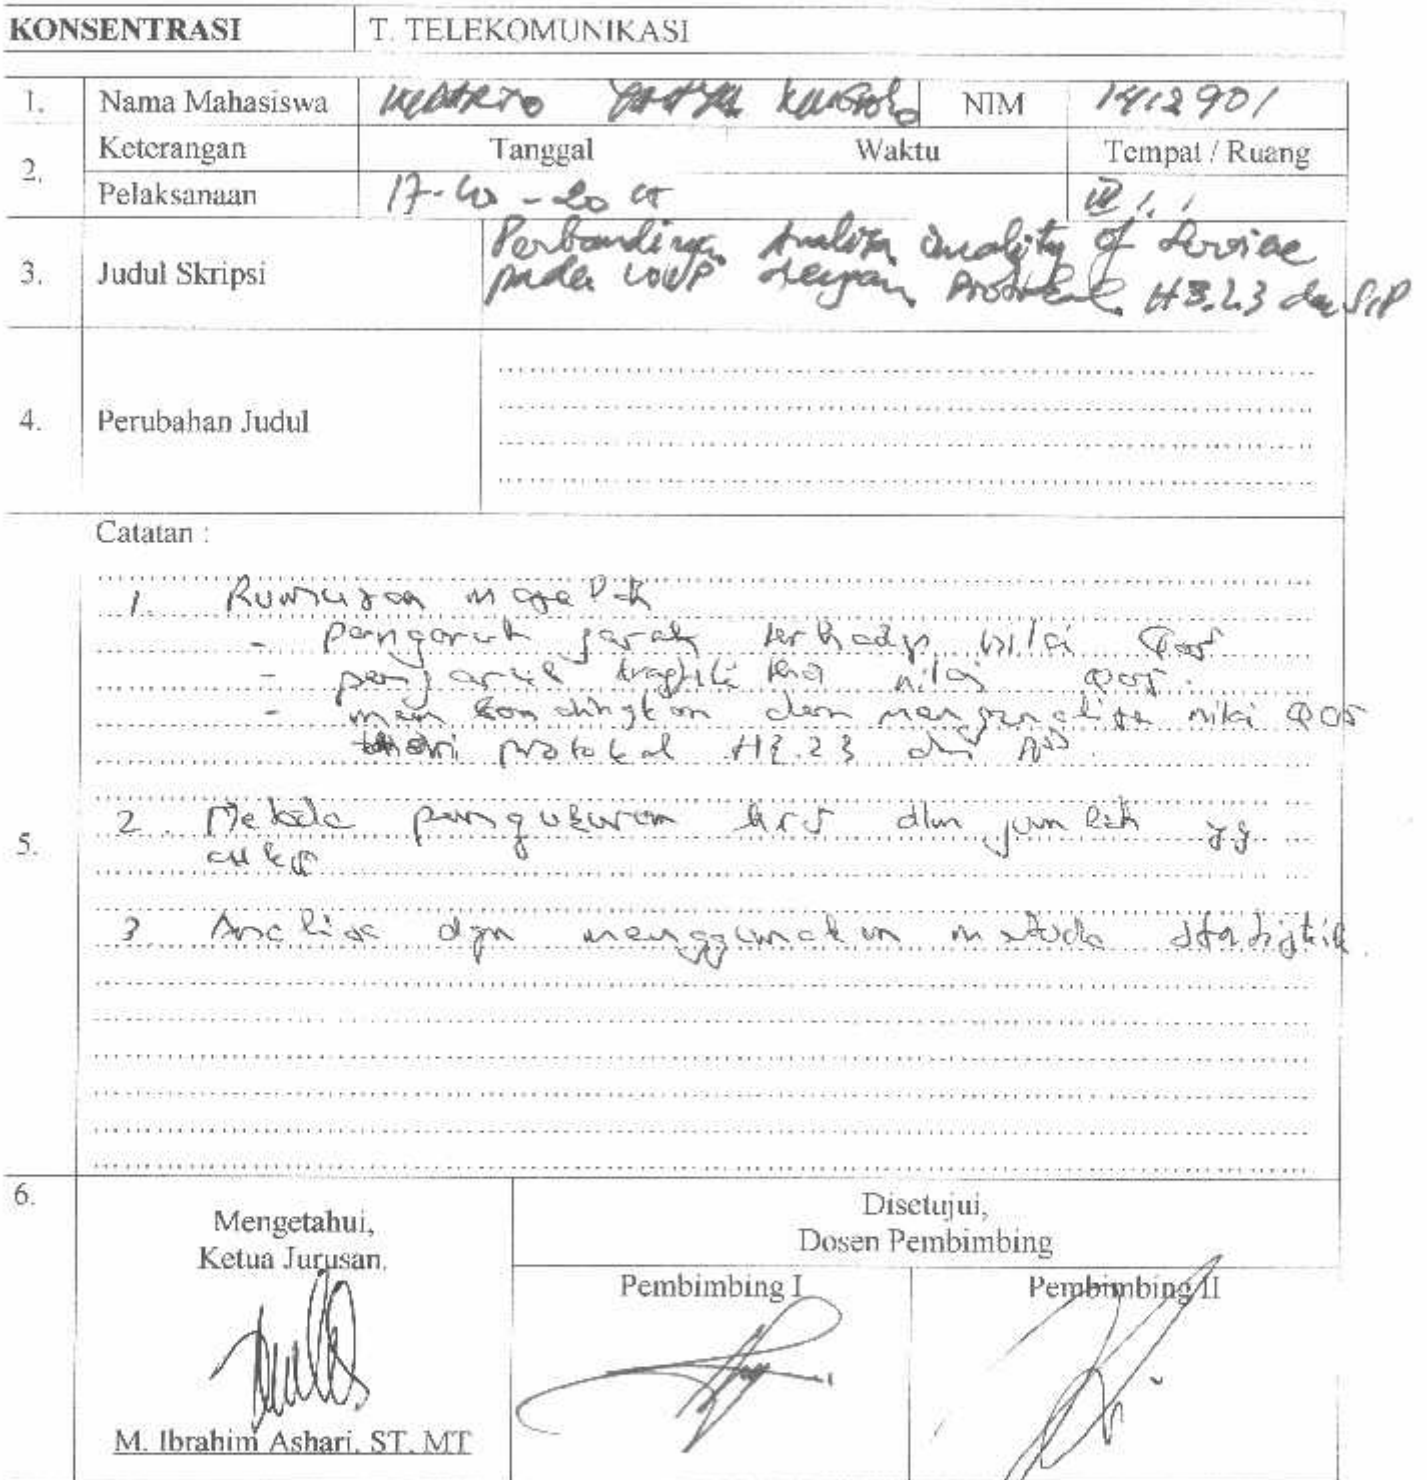 KONSENTRASI T. TELEKOMUNIKASI
1. Nama Mahasiswa NIM 1412901
2. Keterangan Tanggal Waktu Tempat / Ruang
Pelaksanaan 17-
3. Judul Skripsi Perbandingan Analisa Quality of Service
pada VOIP dengan Protokol H3.23 dan SIP
4. Perubahan Judul
Catatan :
5.
1. Rumusan masalah
- pengaruh jarak terhadp nilai QoS
- pengaruh nilai QoS.
- dan menganalisa nilai QOS
protokol H3.23
2. Metode pengukuran hrs dlm jumlah yg
ckp
3. Analisa dgn menggunakan metode statistik
6.
Mengetahui,
Ketua Jurusan.
M. Ibrahim Ashari, ST, MT
Disetujui,
Dosen Pembimbing
Pembimbing I Pembimbing II